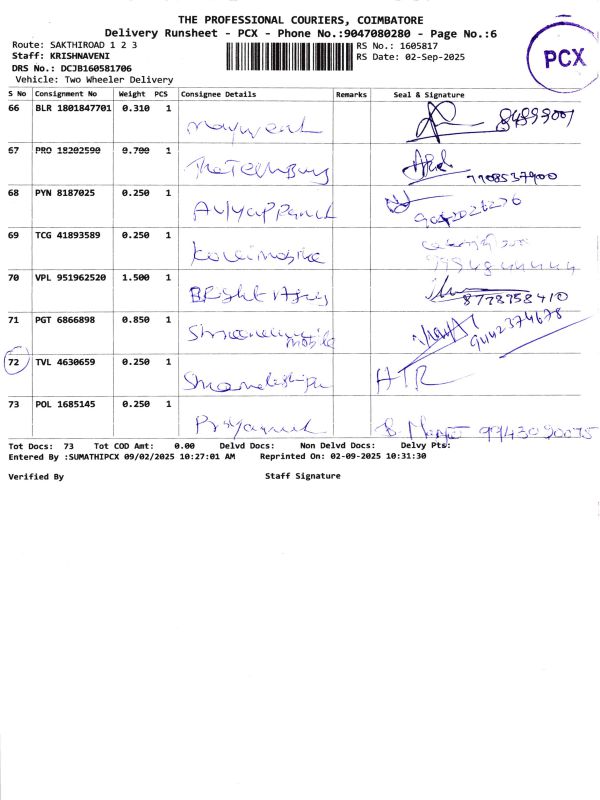 THE PROFESSIONAL COURIERS, COIMBATORE
Delivery Runsheet - PCX - Phone No.:9047080280 - Page No.:6
Route: SAKTHIROAD 1 2 3
RS No.: 1605817
Staff: KRISHNAVENI
RS Date: 02-Sep-2025
DRS No.: DCJB160581706
Vehicle: Two Wheeler Delivery
PCX
S No Consignment No Weight PCS Consignee Details Remarks Seal & Signature
66 BLR 1801847701 0.310 1
67 PRO 18202590 0.700 1 7708537900
68 PYN 8187025 0.250 1
69 TCG 41893589 0.250 1
70 VPL 951962520 1.500 1 8778958410
71 PGT 6866898 0.850 1 mobile 9442374678
72 TVL 4630659 0.250 1 HTR
73 POL 1685145 0.250 1 9943090075
Tot Docs: 73 Tot COD Amt: 0.00 Delvd Docs: Non Delvd Docs: Delvy Pts:
Entered By :SUMATHIPCX 09/02/2025 10:27:01 AM Reprinted On: 02-09-2025 10:31:30
Verified By Staff Signature